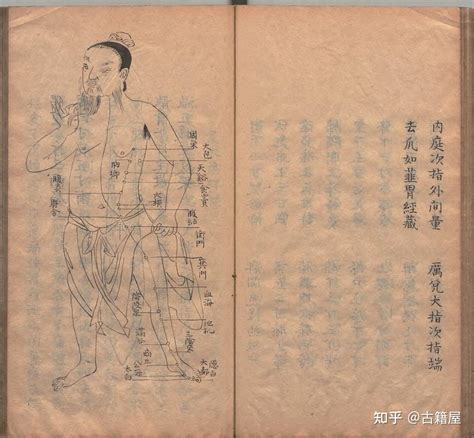 內庭次指外間量　厲兌大指次指端
去爪如韭胃經藏
周榮
大包
胸鄉
天谿
食竇
大橫
腹結
衝門
箕門
血海
地机
陰陵泉
漏谷
三陰交
商丘
公孫
太白
大都
隱白
知乎 @古籍屋